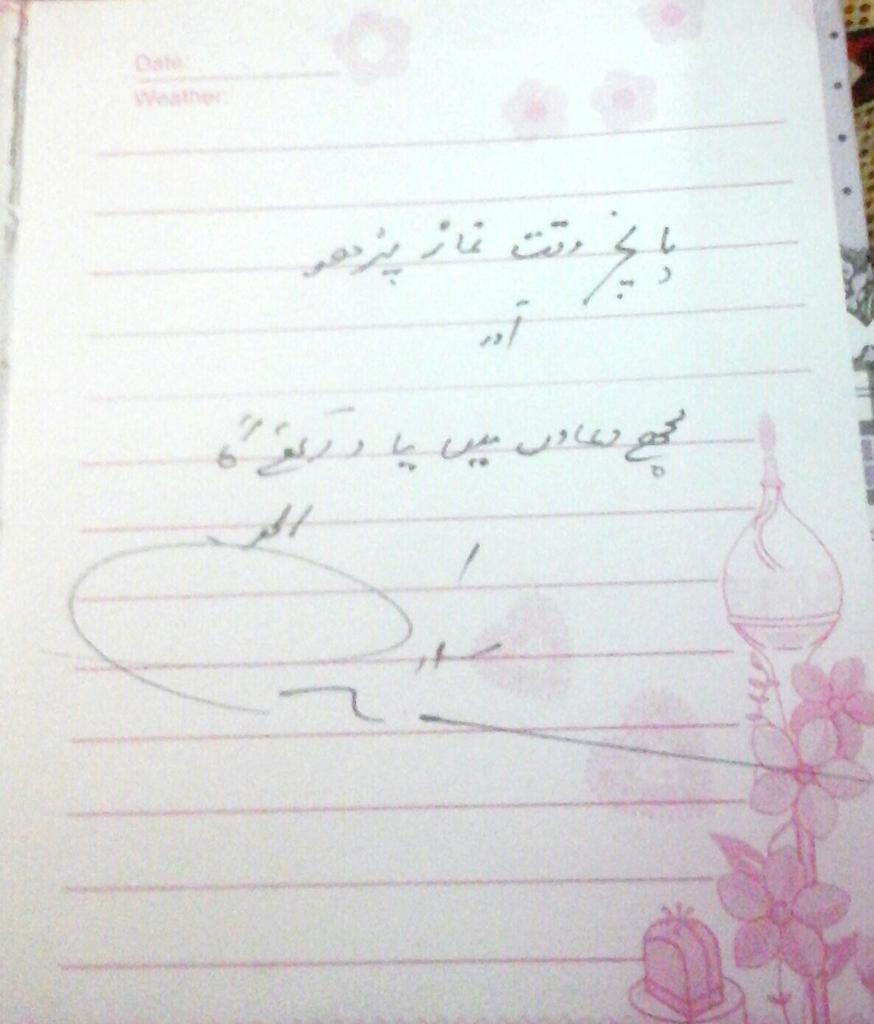 Date:
Weather:
پانچ وقت نماز پڑھو
اور
مجھے دعاوں میں یاد رکھئے گا